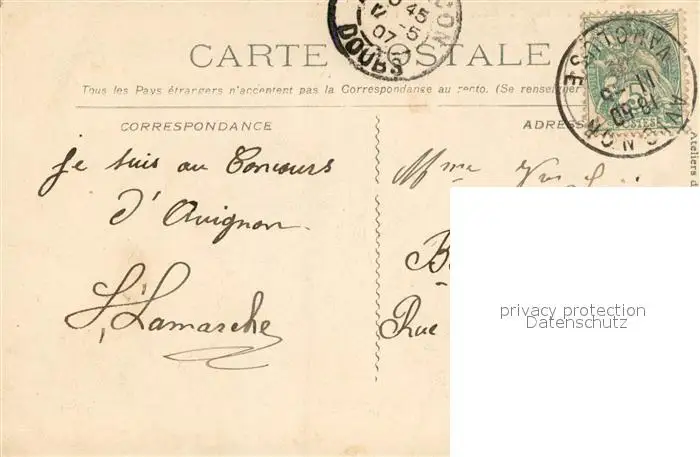 CARTE POSTALE
Tous les Pays étrangers n'acceptent pas la Correspondance au recto. (Se renseigner
CORRESPONDANCE
ADRES
Je suis au Concours
d'Avignon.
L. Lamarche
Mme
B
Rue
45
5
07
DOUBS
AVIGNON GR
VAUCLUSE
POSTES
Ateliers d
privacy protection
Datenschutz